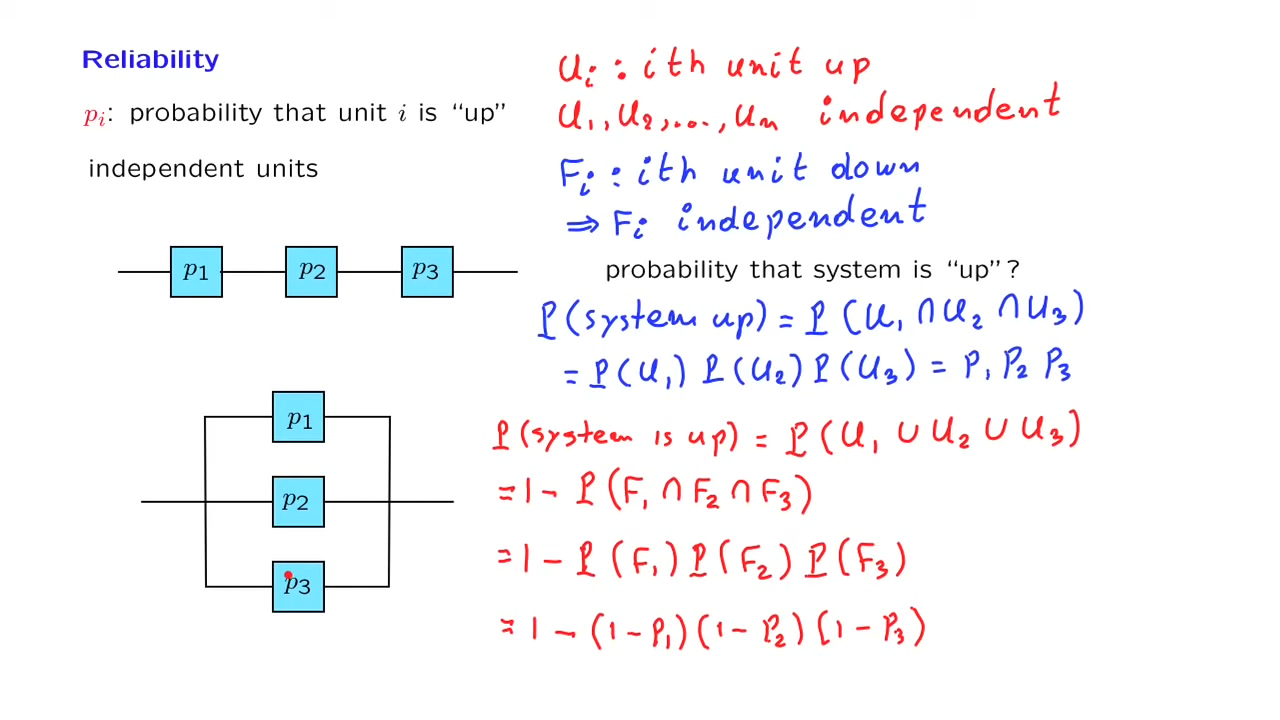 Reliability
p_i: probability that unit i is “up”
independent units
U_i : ith unit up
U_1, U_2, ..., U_n independent
F_i : ith unit down
⇒ F_i independent
p_1 p_2 p_3
probability that system is “up”?
P(system up) = P(U_1 ∩ U_2 ∩ U_3)
= P(U_1) P(U_2) P(U_3) = P_1 P_2 P_3
p_1
p_2
p_3
P(system is up) = P(U_1 ∪ U_2 ∪ U_3)
= 1 - P(F_1 ∩ F_2 ∩ F_3)
= 1 - P(F_1) P(F_2) P(F_3)
= 1 - (1 - P_1)(1 - P_2)(1 - P_3)